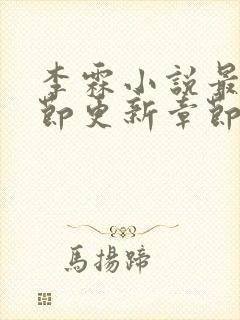 李霖小說最
節更新章節
馬揚蹄